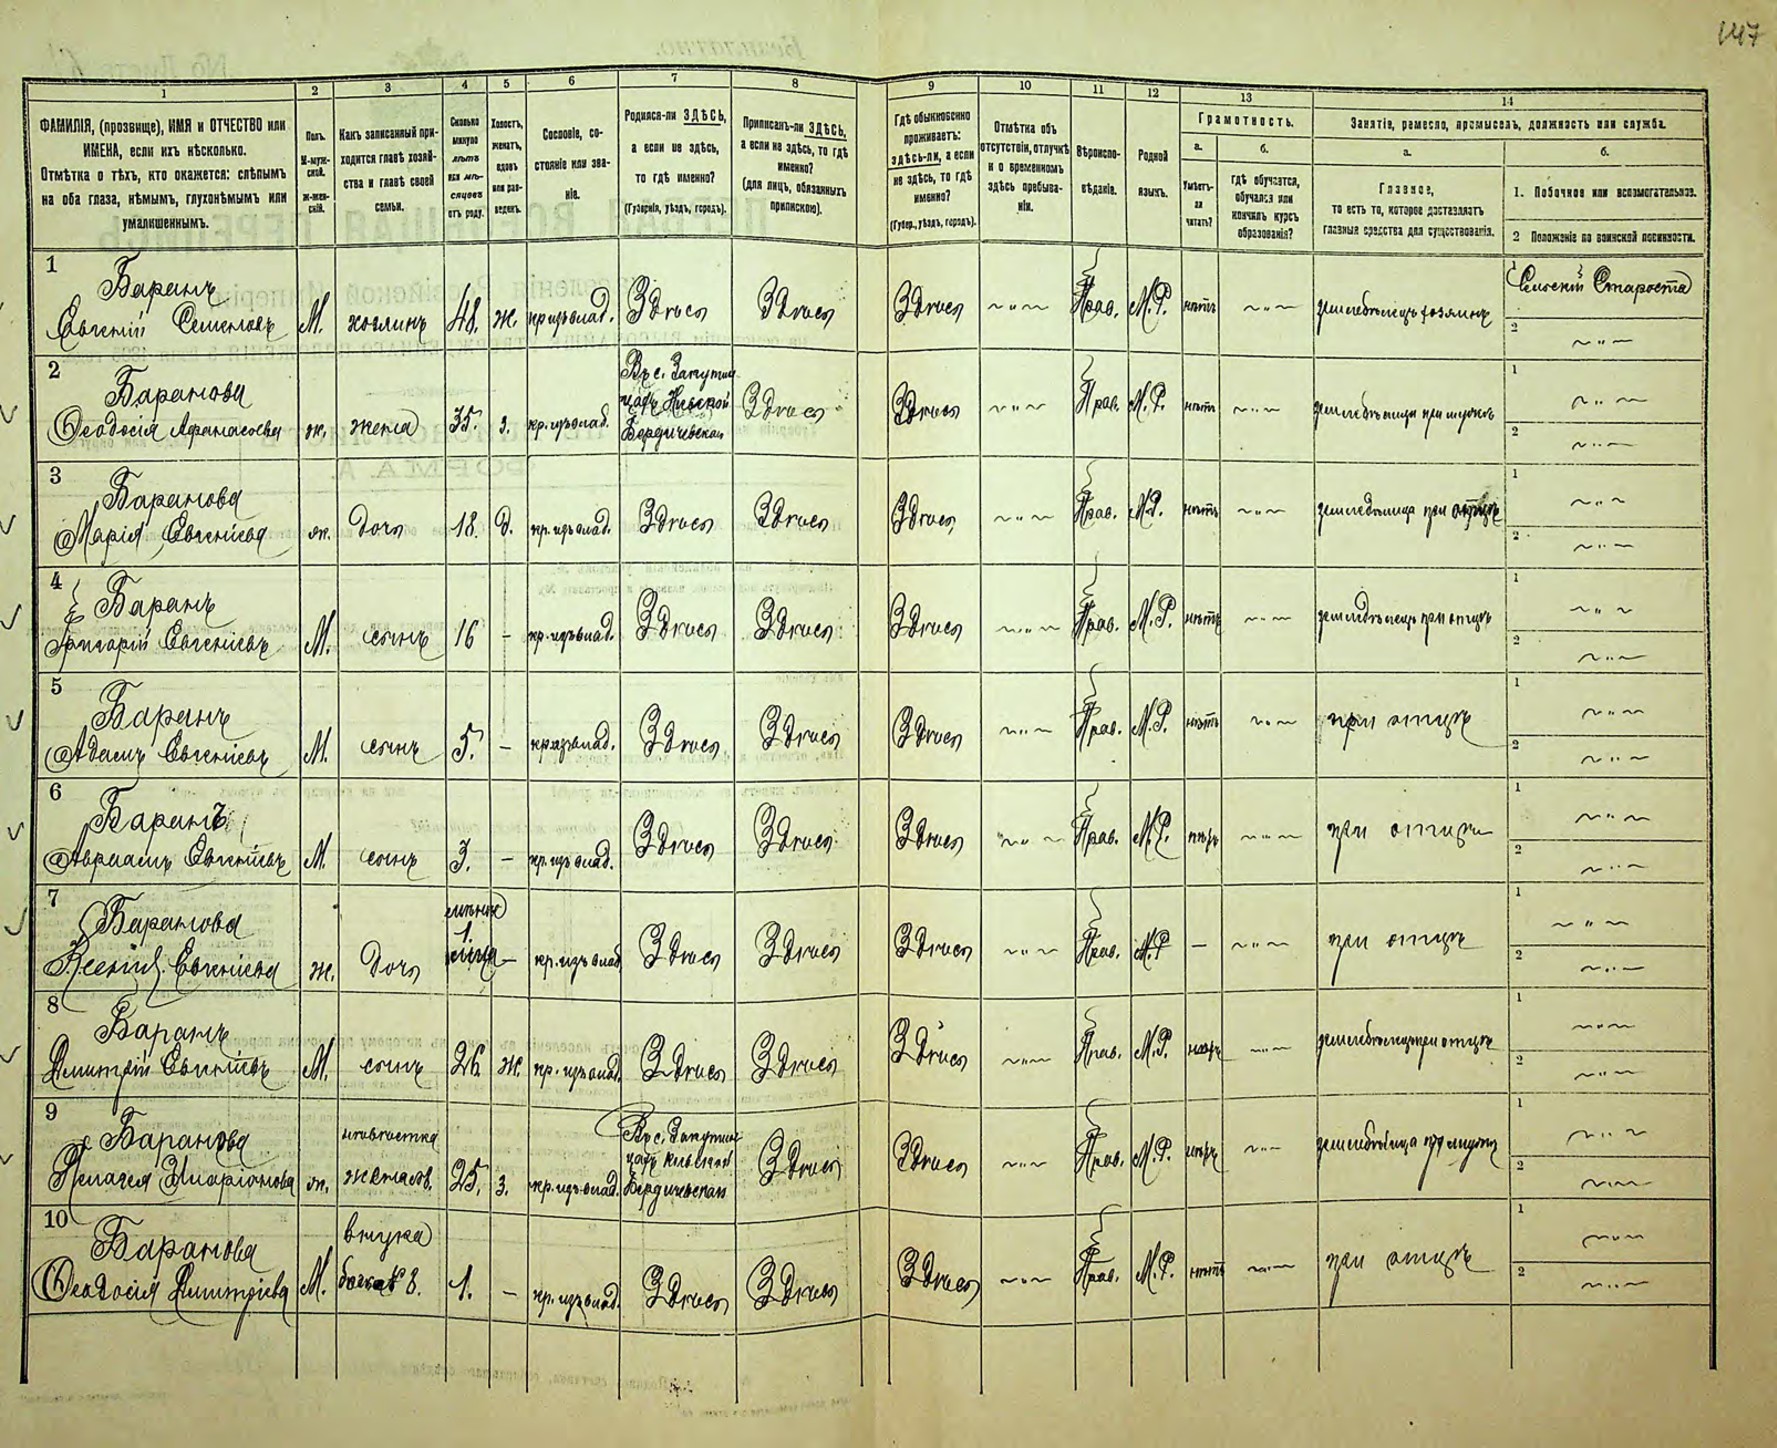 147
1 2 3 4 5 6 7 8 9 10 11 12 13 14
ФАМИЛІЯ, (прозвище), ИМЯ и ОТЧЕСТВО или
ИМЕНА, если ихъ нѣсколько.
Отмѣтка о тѣхъ, кто окажется: слѣпымъ
на оба глаза, нѣмымъ, глухонѣмымъ или
умалишеннымъ.
Полъ.
М-муж-
ской.
ж-жен-
скій.
Какъ записанный при-
ходится главѣ хозяй-
ства и главѣ своей
семьи.
Сколько
минуло
лѣтъ
или мѣ-
сяцевъ
отъ роду.
Холостъ,
женатъ,
вдовъ
или раз-
веденъ.
Сословіе, со-
стояніе или зва-
ніе.
Родился-ли ЗДѢСЬ,
а если не здѣсь,
то гдѣ именно?
(Губернія, уѣздъ, городъ).
Приписанъ-ли ЗДѢСЬ,
а если не здѣсь, то гдѣ
именно?
(для лицъ, обязанныхъ
припискою).
Гдѣ обыкновенно
проживаетъ:
здѣсь-ли, а если
не здѣсь, то гдѣ
именно?
(Губер., уѣздъ, городъ).
Отмѣтка объ
отсутствіи, отлучкѣ
и о временномъ
здѣсь пребыва-
ніи.
Вѣроиспо-
вѣданіе.
Родной
языкъ.
Грамотность.
а.
Умѣетъ-
ли
читать?
б.
Гдѣ обучается,
обучался или
кончилъ курсъ
образованія?
Занятіе, ремесло, промыселъ, должность или служба.
а.
Главное,
то есть то, которое доставляетъ
главныя средства для существованія.
б.
1. Побочное или вспомогательное.
2 Положеніе по воинской повинности.
1 Баранъ
Евгеній Семеновъ М. хозяинъ 48. ж. кр.изъ влад. Здѣсь Здѣсь Здѣсь Прав. М.Р. нѣтъ земледѣлецъ хозяинъ 1 Сельскій Староста
2
2 Баранова
Феодосія Афанасьева ж. жена 35. з. кр.изъ влад. Въ с. Бердичевскаго Здѣсь Здѣсь Прав. М.Р. нѣтъ земледѣлица при мужѣ 1
2
3 Баранова
Марія Евгеніева ж. дочь 18. д. кр.изъ влад. Здѣсь Здѣсь Здѣсь Прав. М.Р. нѣтъ земледѣлица при отцѣ 1
2
4 Баранъ
Григорій Евгеніевъ М. сынъ 16 - кр.изъ влад. Здѣсь Здѣсь Здѣсь Прав. М.Р. нѣтъ земледѣлецъ при отцѣ 1
2
5 Баранъ
Адамъ Евгеніевъ М. сынъ 5. - кр.изъ влад. Здѣсь Здѣсь Здѣсь Прав. М.Р. нѣтъ при отцѣ 1
2
6 Баранъ
Авраамъ Евгеніевъ М. сынъ 3. - кр.изъ влад. Здѣсь Здѣсь Здѣсь Прав. М.Р. нѣтъ при отцѣ 1
2
7 Баранова
Ксенія Евгеніева ж. дочь 1. - кр.изъ влад. Здѣсь Здѣсь Здѣсь Прав. М.Р - при отцѣ 1
2
8 Баранъ
Димитрій Евгеніевъ М. сынъ 26. ж. кр.изъ влад. Здѣсь Здѣсь Здѣсь Прав. М.Р. нѣтъ земледѣлецъ при отцѣ 1
2
9 Баранова невѣстка
Пелагея Иларіонова ж. 25. з. кр.изъ влад. Въ с. Здѣсь Здѣсь Прав. М.Р. нѣтъ земледѣлица при мужѣ 1
2
10 Баранова внучка
Феодосія Димитріева М. 8. 1. - кр.изъ влад. Здѣсь Здѣсь Здѣсь Прав. М.Р. нѣтъ при отцѣ 1
2